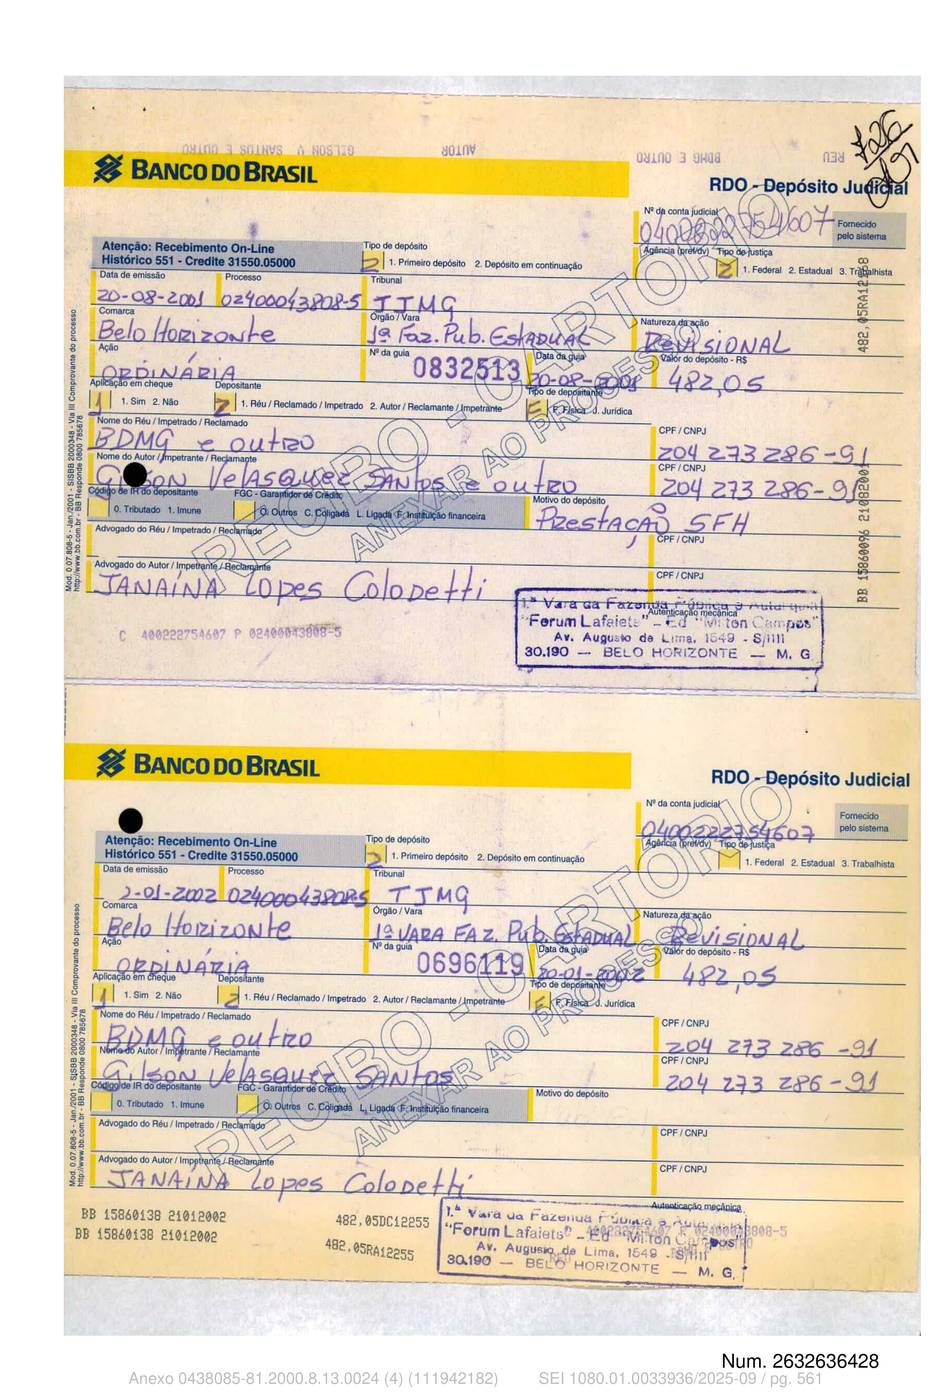 GILSON V SANTOS E OUTRO AUTOR BDMG E OUTRO REU
726
BANCO DO BRASIL
RDO - Depósito Judicial
Nº da conta judicial
0400222754607
Fornecido pelo sistema
Atenção: Recebimento On-Line
Histórico 551 - Credite 31550.05000
Tipo de depósito
2 1. Primeiro depósito 2. Depósito em continuação
Agência (pref/dv) Tipo de justiça
2 1. Federal 2. Estadual 3. Trabalhista
Data de emissão Processo Tribunal
20-08-2001 02400043808-5 TJMG
Comarca Órgão / Vara Natureza da ação
Belo Horizonte 1ª Faz. Pub. Estadual Revisional
Ação Nº da guia Data da guia Valor do depósito - R$
ORDINÁRIA 0832513 20-08-2001 482,05
Aplicação em cheque Depositante Tipo de depositante
1 1. Sim 2. Não 2 1. Réu / Reclamado / Impetrado 2. Autor / Reclamante / Impetrante F F. Física J. Jurídica
Nome do Réu / Impetrado / Reclamado CPF / CNPJ
BDMG e outro 204 273 286-91
Nome do Autor / Impetrante / Reclamante CPF / CNPJ
Gilson Velasquez Santos e outro 204 273 286-91
Código de IR do depositante FGC - Garantidor de Crédito Motivo do depósito
0. Tributado 1. Imune O. Outros C. Coligada L. Ligada F. Instituição financeira Prestação SFH
Advogado do Réu / Impetrado / Reclamado CPF / CNPJ
Advogado do Autor / Impetrante / Reclamante CPF / CNPJ
JANAÍNA Lopes Colodetti
Autenticação mecânica
1.ª Vara da Fazenda Pública e Autarquia
"Forum Lafaiete" – Ed "Milton Campos"
Av. Augusto de Lima, 1549 - S/1111
30.190 — BELO HORIZONTE — M. G.
C 400222754607 P 02400043808-5
RECIBO - CARTÓRIO
ANEXAR AO PROCESSO
Mod. 0.07.808-5 - Jan./2001 - SISBB 2000348 - Via III Comprovante do processo
http://www.bb.com.br - BB Responde 0800 785678
BB 15860096 21082001 482,05RA12168
BANCO DO BRASIL
RDO - Depósito Judicial
Nº da conta judicial
0400222754607
Fornecido pelo sistema
Atenção: Recebimento On-Line
Histórico 551 - Credite 31550.05000
Tipo de depósito
2 1. Primeiro depósito 2. Depósito em continuação
Agência (pref/dv) Tipo de justiça
1. Federal 2. Estadual 3. Trabalhista
Data de emissão Processo Tribunal
2-01-2002 02400043808-5 TJMG
Comarca Órgão / Vara Natureza da ação
Belo Horizonte 1ª VARA FAZ. Pub. Estadual Revisional
Ação Nº da guia Data da guia Valor do depósito - R$
ORDINÁRIA 0696119 20-01-2002 482,05
Aplicação em cheque Depositante Tipo de depositante
1 1. Sim 2. Não 2 1. Réu / Reclamado / Impetrado 2. Autor / Reclamante / Impetrante F F. Física J. Jurídica
Nome do Réu / Impetrado / Reclamado CPF / CNPJ
BDMG e outro 204 273 286-91
Nome do Autor / Impetrante / Reclamante CPF / CNPJ
Gilson Velasquez SANTOS 204 273 286-91
Código de IR do depositante FGC - Garantidor de Crédito Motivo do depósito
0. Tributado 1. Imune O. Outros C. Coligada L. Ligada F. Instituição financeira
Advogado do Réu / Impetrado / Reclamado CPF / CNPJ
Advogado do Autor / Impetrante / Reclamante CPF / CNPJ
JANAÍNA Lopes Colodetti
Autenticação mecânica
BB 15860138 21012002 482,05DC12255
BB 15860138 21012002 482,05RA12255
1.ª Vara da Fazenda Pública e Autarquia
"Forum Lafaiete" – Ed "Milton Campos"
Av. Augusto de Lima, 1549 - S/1111
30.190 — BELO HORIZONTE — M. G.
RECIBO - CARTÓRIO
ANEXAR AO PROCESSO
Mod. 0.07.808-5 - Jan./2001 - SISBB 2000348 - Via III Comprovante do processo
http://www.bb.com.br - BB Responde 0800 785678
Num. 2632636428
Anexo 0438085-81.2000.8.13.0024 (4) (111942182) SEI 1080.01.0033936/2025-09 / pg. 561